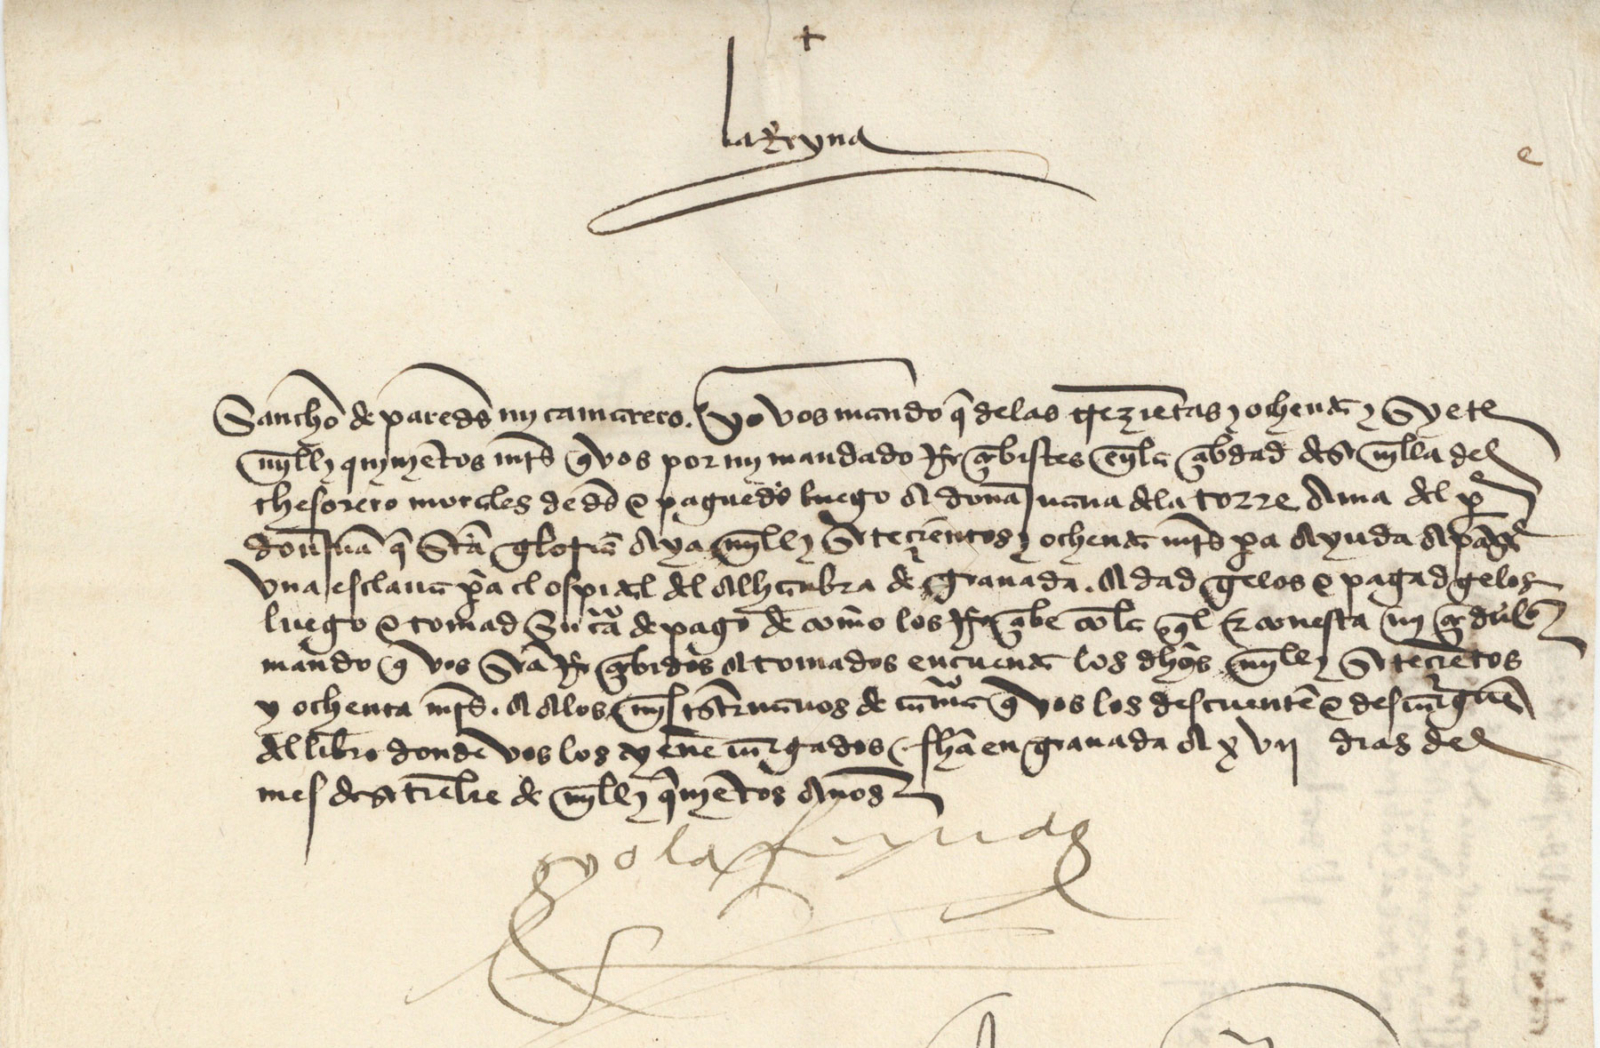 +
la Reyna
Sancho de paredes my camarero. Yo vos mando q̄ de las trezientas y ochenta y syete
myll y quinientos mrs q̄ vos por my mandado Resçebistes en la çibdad de sevylla del
thesorero morales dedes e paguedes luego a doña Juana de la torre Ama del p̄
don Juā q̄ Sctā gloria Aya myll y setecientos y ochenta mrs pa Ayuda A pagar
vna esclava pa el ospital del Alhanbra de granada. A dad gelos e pagad gelos
luego e tomad Su cta de pago de como los Resçibe con la ql e con esta my çedula
mando q̄ vos sean Resçebidos A tomados en cuenta los dhos myll y setecientos
y ochenta mrs. A A los mys escrivanos de camara q̄ vos los descuentē e descarguē
del libro donde vos los tyenē cargados. fha en granada A xvii dias del
mes de setienbre de myll y quinientos Años
yo la Reyna